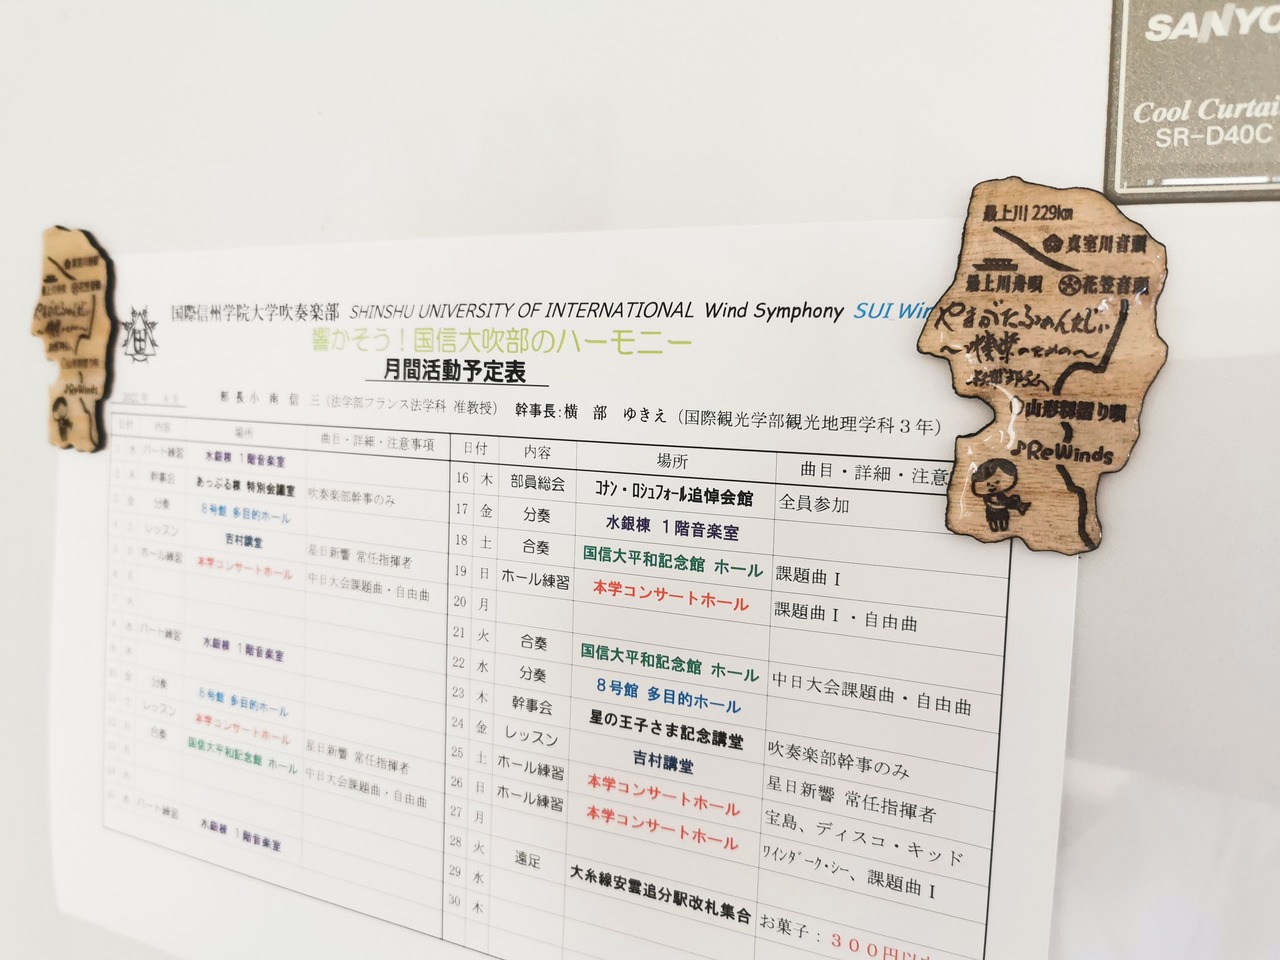 SANYO
Cool Curtai
SR-D40C
最上川 229km
真室川音頭
最上川舟唄 花笠音頭
やまがたふぁんたじぃ
♪ReWinds
♪ReWinds
国際信州学院大学吹奏楽部 SHINSHU UNIVERSITY OF INTERNATIONAL Wind Symphony SUI Win
響かそう！国信大吹部のハーモニー
月間活動予定表
部 長 小 南 信 三（法学部フランス法学科 准教授） 幹事長：横 部 ゆきえ（国際観光学部観光地理学科３年）
日付 内容 場所 曲目・詳細・注意事項
水 パート練習 水銀棟 １階音楽室
木 幹事会 あっぷる棟 特別会議室 吹奏楽部幹事のみ
金 分奏 ８号館 多目的ホール
土 レッスン 吉村講堂 星日新響 常任指揮者
日 ホール練習 本学コンサートホール 中日大会課題曲・自由曲
水 パート練習 水銀棟 １階音楽室
金 分奏 ８号館 多目的ホール
土 レッスン 本学コンサートホール 星日新響 常任指揮者
日 合奏 国信大平和記念館 ホール 中日大会課題曲・自由曲
パート練習 水銀棟 １階音楽室
日付 内容 場所 曲目・詳細・注意
16 木 部員総会 ｺﾅﾝ・ﾛｼｭﾌｫｰﾙ追悼会館 全員参加
17 金 分奏 水銀棟 １階音楽室
18 土 合奏 国信大平和記念館 ホール 課題曲Ⅰ
19 日 ホール練習 本学コンサートホール 課題曲Ⅰ・自由曲
20 月
21 火 合奏 国信大平和記念館 ホール 中日大会課題曲・自由曲
22 水 分奏 ８号館 多目的ホール
23 木 幹事会 星の王子さま記念講堂 吹奏楽部幹事のみ
24 金 レッスン 吉村講堂 星日新響 常任指揮者
25 土 ホール練習 本学コンサートホール 宝島、ディスコ・キッド
26 日 ホール練習 本学コンサートホール ﾜｲﾝﾀﾞｰｸ・ｼｰ、課題曲Ⅰ
27 月
28 火 遠足 大糸線安雲追分駅改札集合 お菓子：３００円以
29 水
30 木